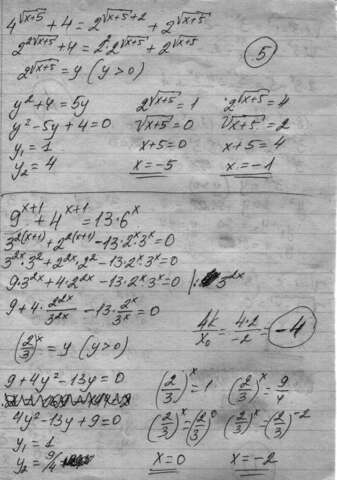 4^√(x+5) + 4 = 2^(√(x+5)+2) + 2^√(x+5)
2^(2√(x+5)) + 4 = 2²·2^√(x+5) + 2^√(x+5)
5
2^√(x+5) = y (y>0)
y²+4=5y
y²-5y+4=0
y₁=1
y₂=4
2^√(x+5) = 1
√(x+5) = 0
x+5=0
x=-5
2^√(x+5) = 4
√(x+5) = 2
x+5=4
x=-1
9^(x+1) + 4^(x+1) = 13·6^x
3^(2(x+1)) + 2^(2(x+1)) - 13·2^x·3^x = 0
3^(2x)·3² + 2^(2x)·2² - 13·2^x·3^x = 0
9·3^(2x) + 4·2^(2x) - 13·2^x·3^x = 0 |: 3^(2x)
9 + 4·2^(2x)/3^(2x) - 13·2^x/3^x = 0
4k/x₀ = 4·2/-2 = -4
(2/3)^x = y (y>0)
9+4y²-13y=0
4y²-13y+9=0
y₁=1
y₂=9/4
(2/3)^x = 1
(2/3)^x = (2/3)^0
x=0
(2/3)^x = 9/4
(2/3)^x = (2/3)^-2
x=-2